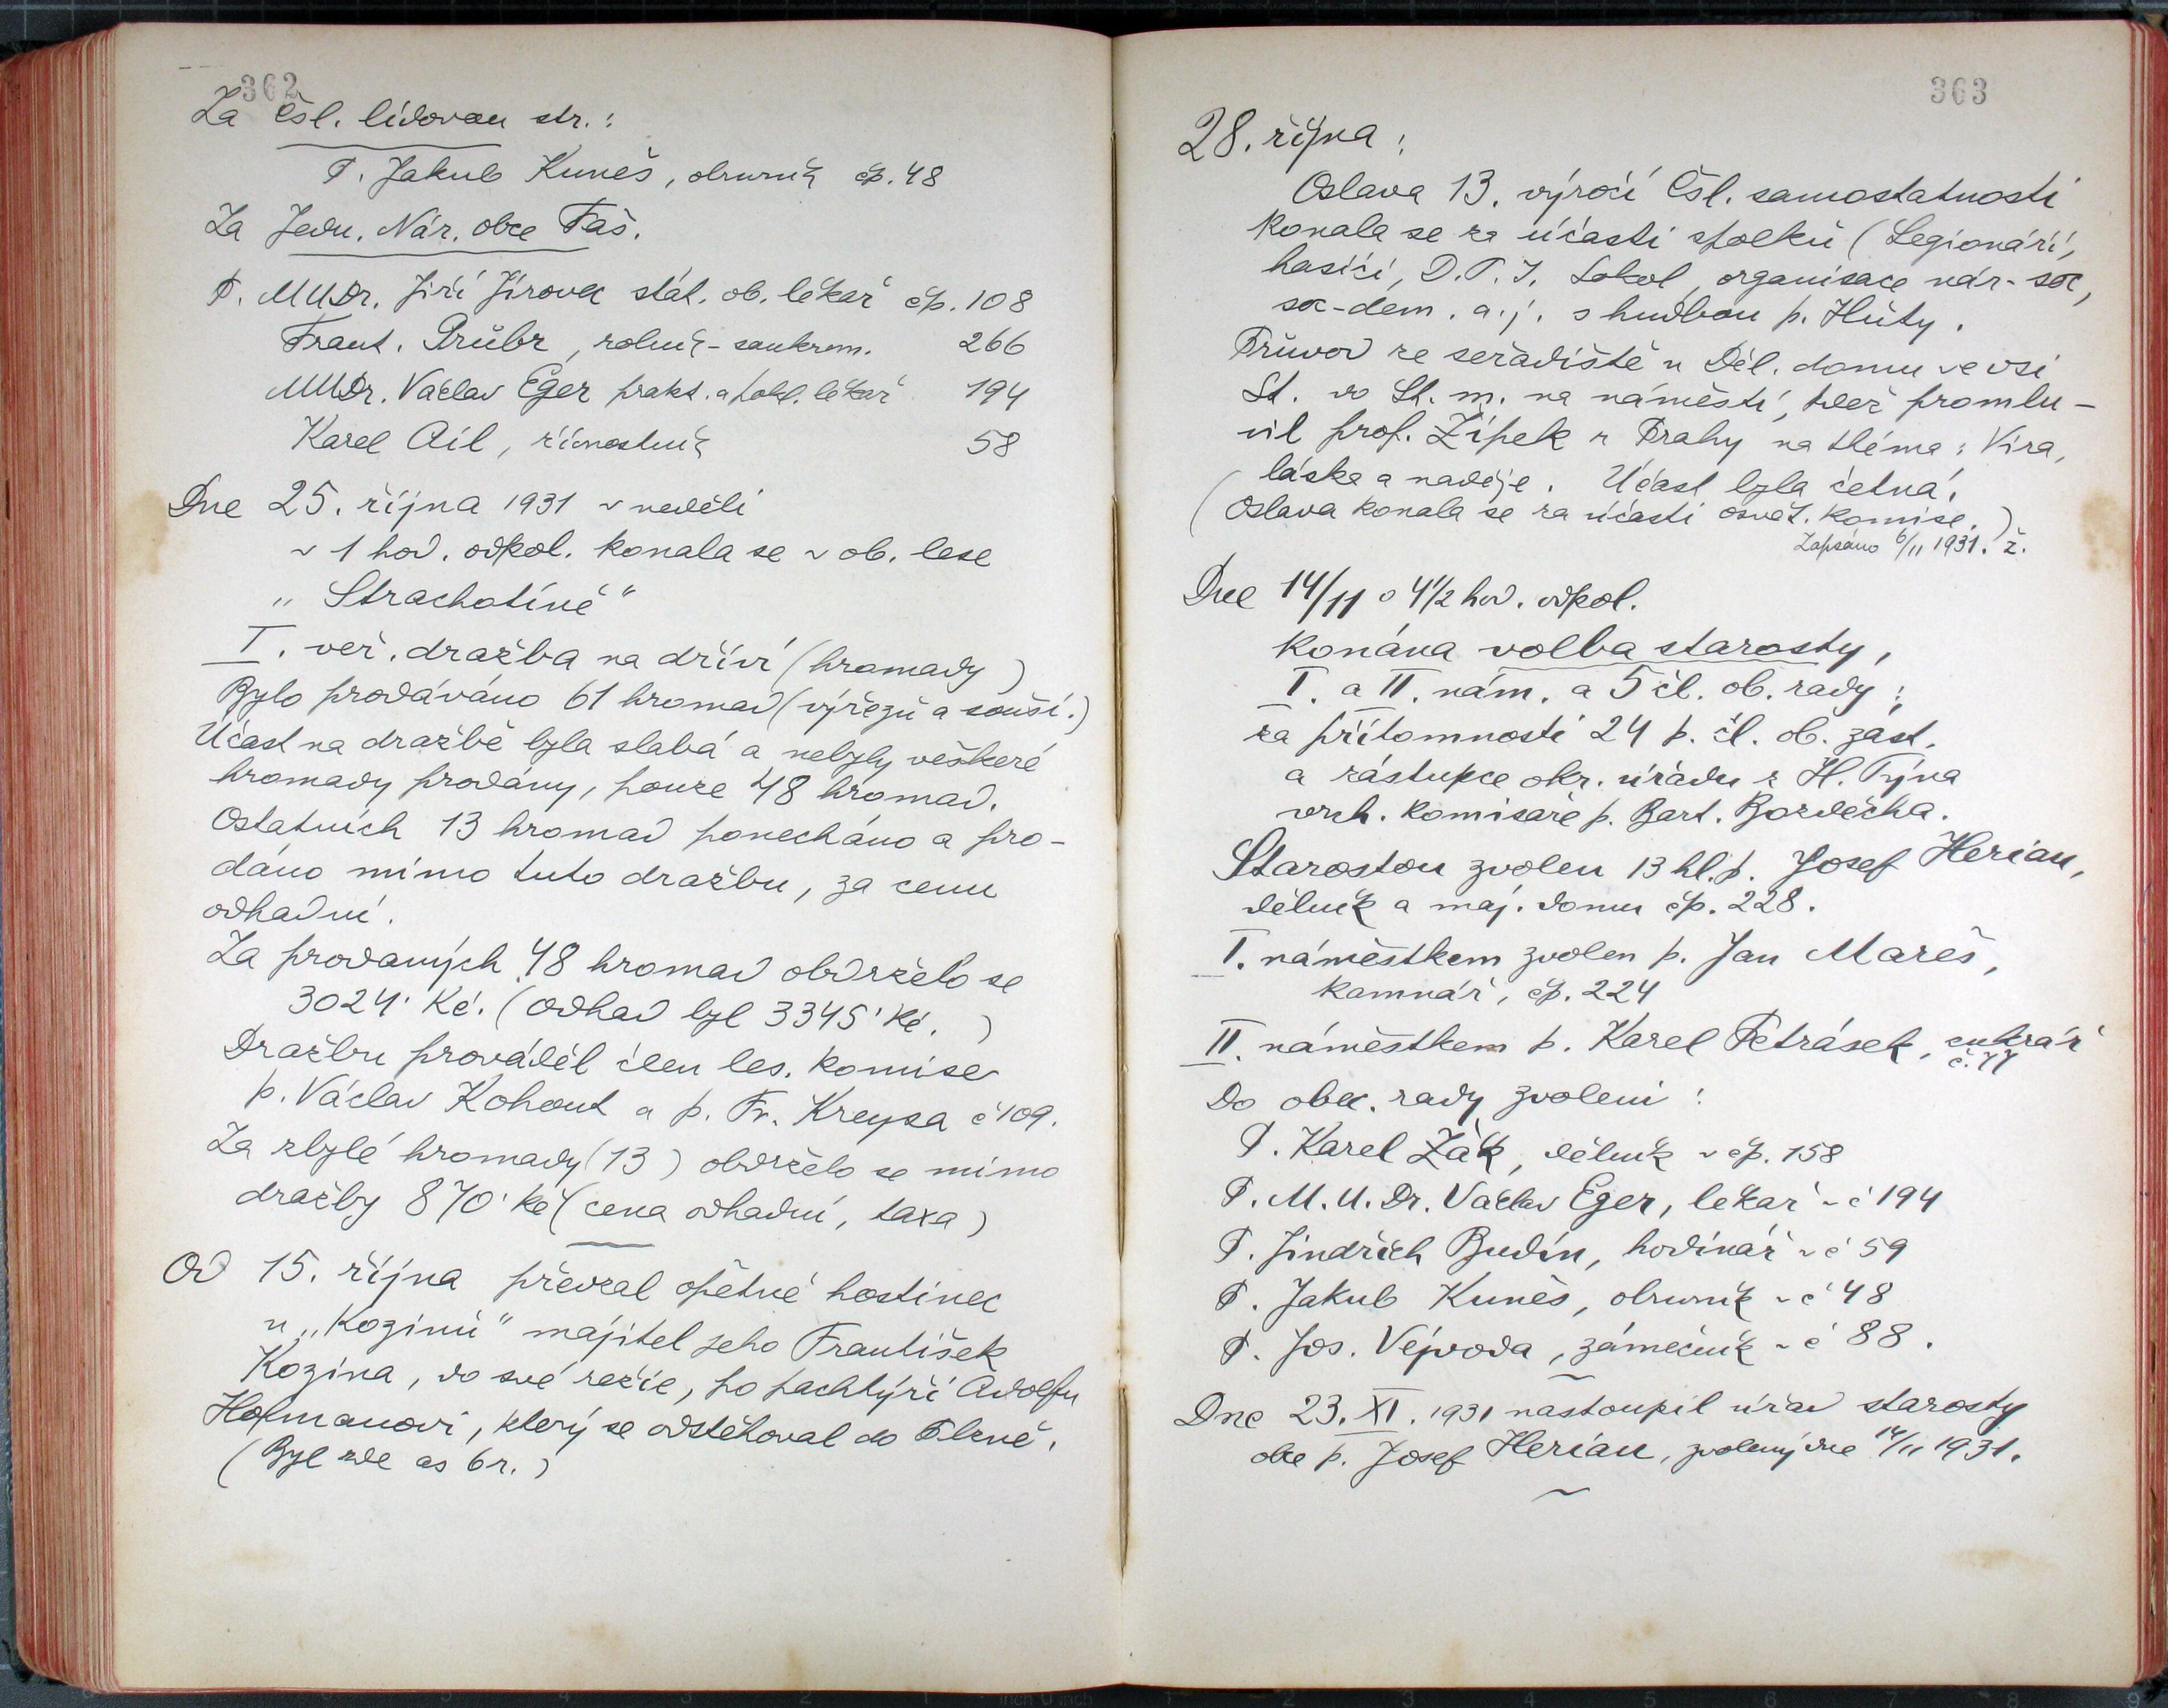 362
Za Čsl. lidovou str.:
P. Jakub Kuneš, obuvník čp. 48
Za Jedn. Nár. obce Faš.
P. MUDr. Jiří Jírovec stát. ob. lékař čp. 108
Frant. Průbr, rolník - soukrom. 266
MUDr. Václav Eger prakt. a pokl. lékař 194
Karel Ail, živnostník 58
Dne 25. října 1931 v neděli
v 1 hod. odpol. konala se v ob. lese
„Strachotíně“
I. veř. dražba na dříví (hromady)
Bylo prodáváno 61 hromad (výřezů a souší.)
Účast na dražbě byla slabá a nebyly veškeré
hromady prodány, pouze 48 hromad.
Ostatních 13 hromad ponecháno a pro-
dáno mimo tuto dražbu, za cenu
odhadní.
Za prodaných 48 hromad obdrželo se
3024' Kč. (Odhad byl 3345' Kč.)
Dražbu prováděl člen les. komise
p. Václav Kohout a p. Fr. Kreysa č 109.
Za zbylé hromady (13) obdrželo se mimo
dražby 870' Kč (cena odhadní, taxa)
Od 15. října převzal opětně hostinec
u „Kozinů“ majitel jeho František
Kozina, do své režie, po pachtýři Adolfu
Hofmanovi, který se odstěhoval do Plzně.
(Byl zde as 6 r.)
363
28. října:
Oslava 13. výročí Čsl. samostatnosti
konala se za účasti spolků (Legionáři,
hasiči, D.T.J. Sokol, organisace nár-soc,
soc-dem. a.j. s hudbou p. Hůty.
Průvod ze seřadiště u Děl. domu ve vsi
St. do St. m. na náměstí, kdež promlu-
vil prof. Žípek z Prahy na théma: Víra,
láska a naděje. Účast byla četná.
(Oslava konala se za účasti osvět. komise.)
Zapsáno 6/11 1931. ž.
Dne 14/11 o 4 1/2 hod. odpol.
konána volba starosty,
I. a II. nám. a 5 čl. ob. rady:
za přítomnosti 24 p. čl. ob. zást.
a zástupce okr. úřadu z H. Týna
vrch. komisaře p. Bart. Bozděcha.
Starostou zvolen 13 hl. p. Josef Herian,
dělník a maj. domu čp. 228.
I. náměstkem zvolen p. Jan Mareš,
kamnář, čp. 224
II. náměstkem p. Karel Petrásek, cukrář
č. 77
Do obec. rady zvoleni:
P. Karel Žák, dělník v čp. 158
P. M.U.Dr. Václav Eger, lékař v č 194
P. Jindřich Budín, hodinář v č 59
P. Jakub Kuneš, obuvník v č 48
P. Jos. Vejvoda, zámečník v č 88.
Dne 23. XI. 1931 nastoupil úřad starosty
obce p. Josef Herian, zvolený dne 14/11 1931.